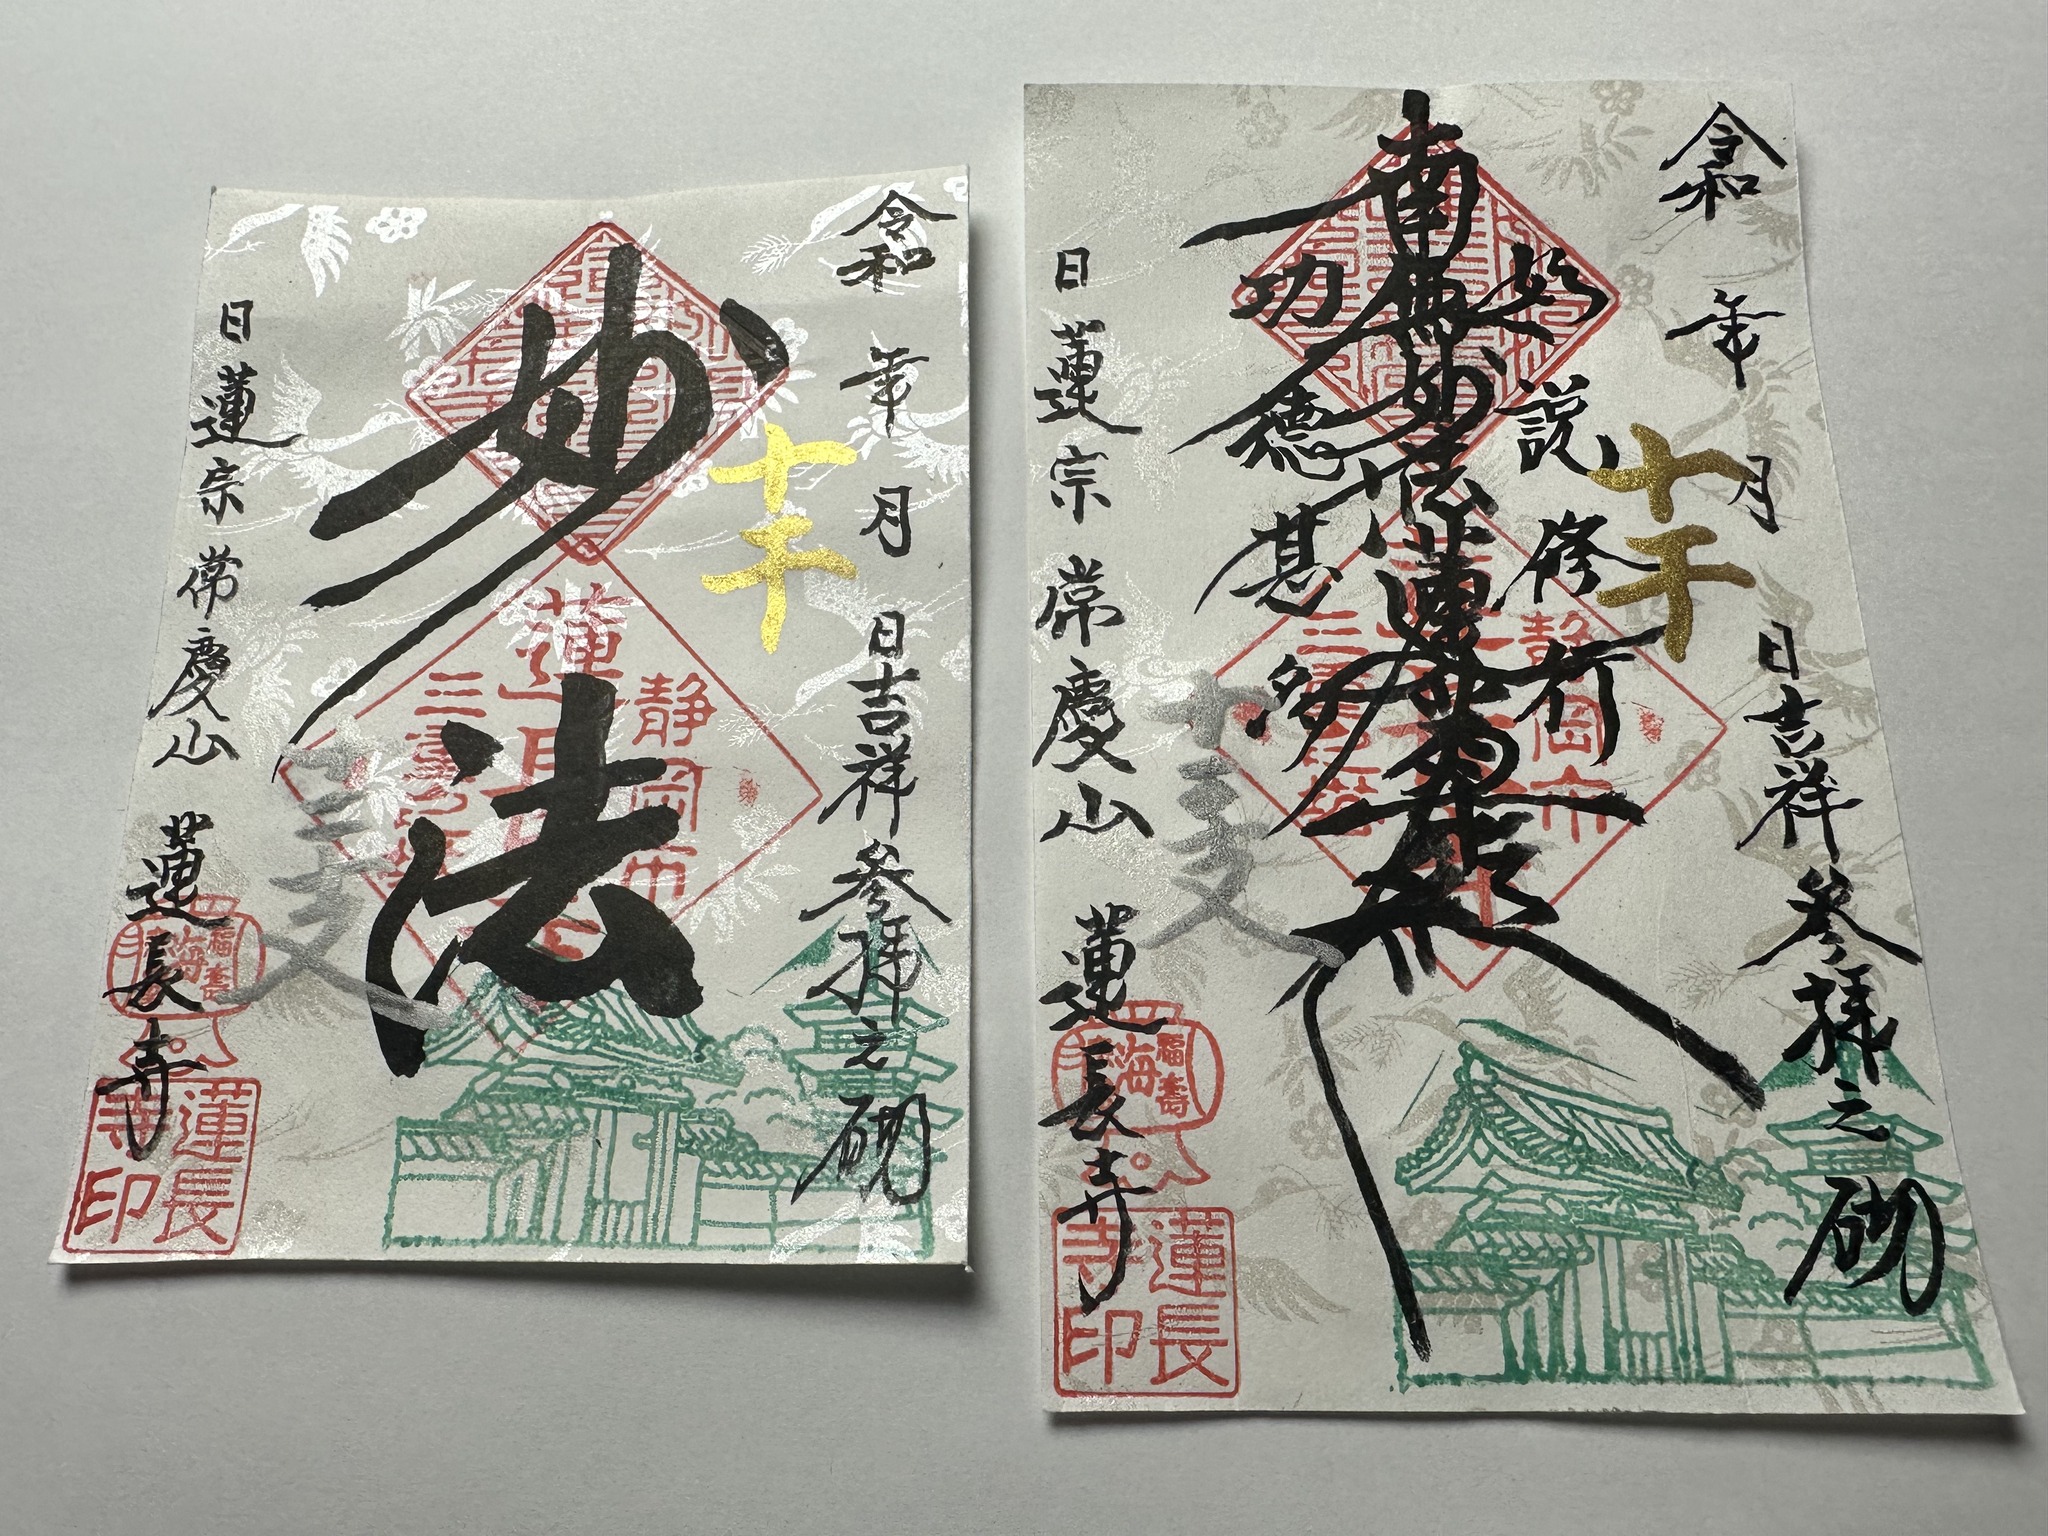 令和 年 月 日吉祥 参拝之砌
十干
妙法
静岡市
十二支
日蓮宗 常慶山 蓮長寺
福壽海
蓮長寺印
令和 年 月 日吉祥 参拝之砌
十干
如説修行
南無妙法蓮華経
功徳甚多
静岡市
十二支
日蓮宗 常慶山 蓮長寺
福壽海
蓮長寺印